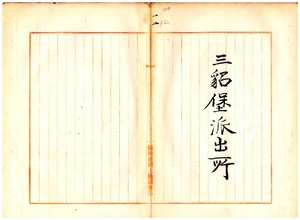 三貂堡派出所
二